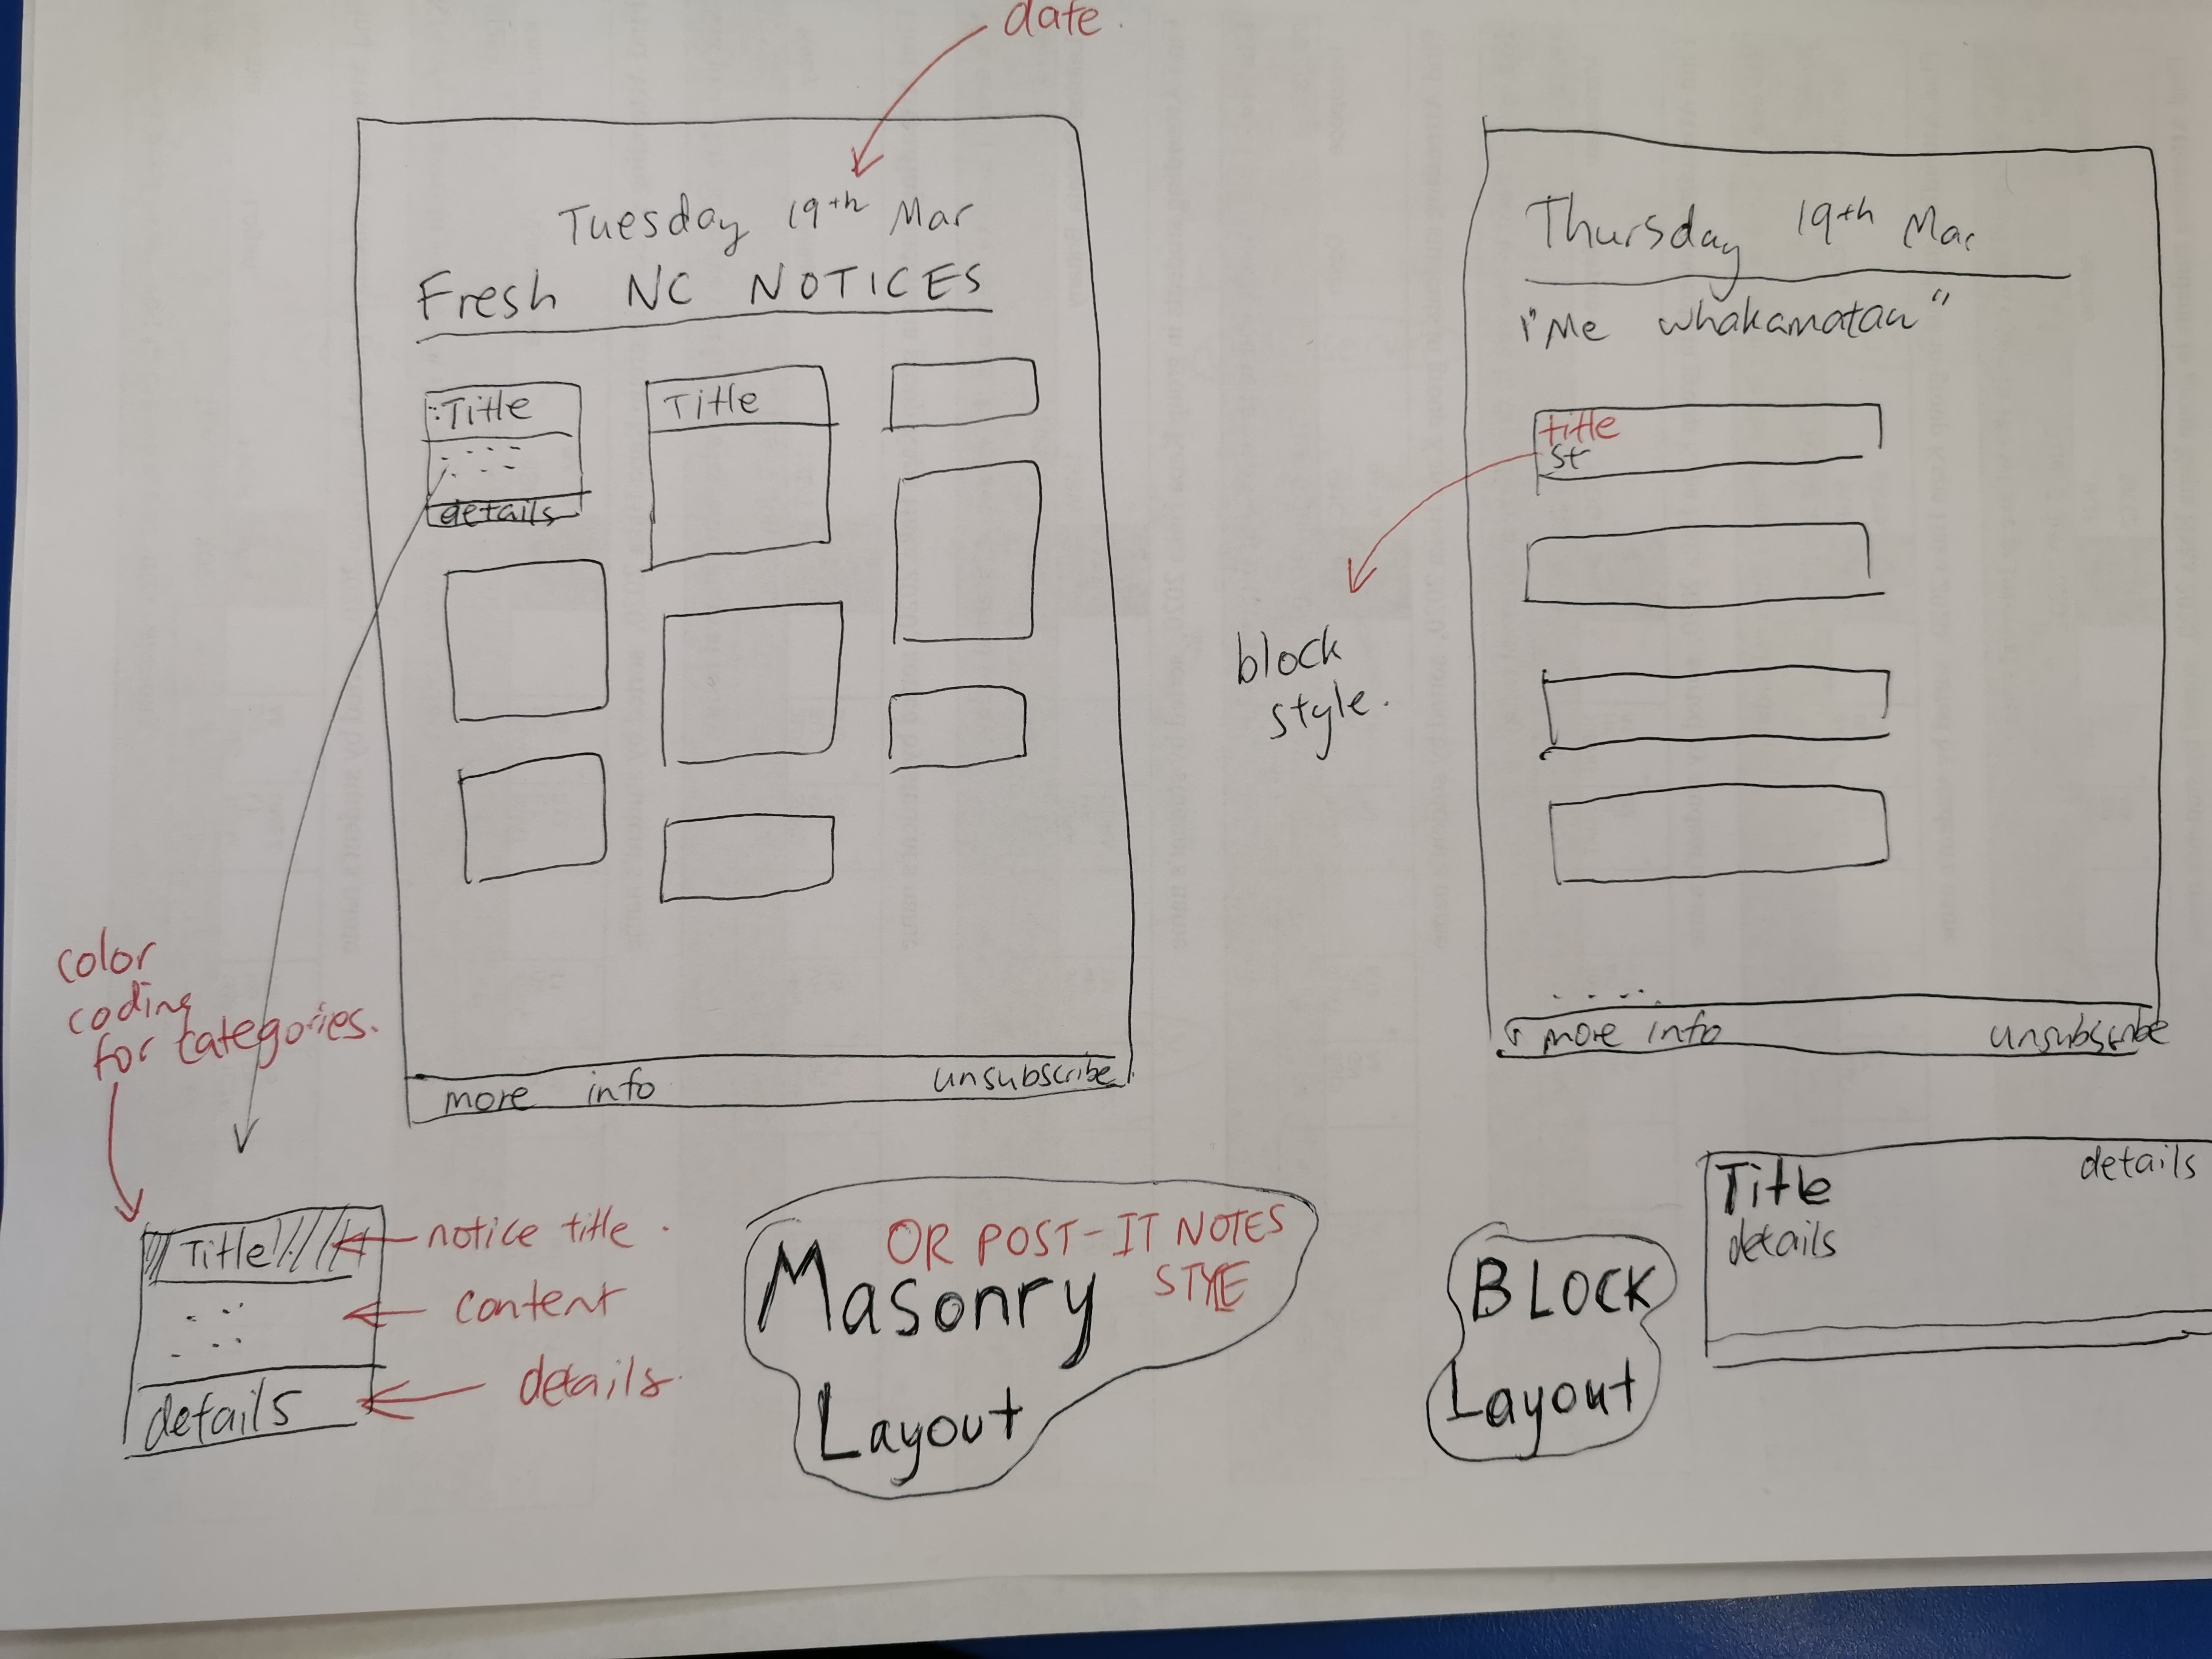 date.
Tuesday 19th Mar
Fresh NC NOTICES
Title
details
Title
more info
unsubscribe
color
coding
for categories.
Title
details
notice title.
content
details.
OR POST-IT NOTES
STYLE
Masonry
Layout
Thursday 19th Mar
"Me whakamatau"
title
St
block
style.
more info
unsubscribe
BLOCK
Layout
Title
details
details